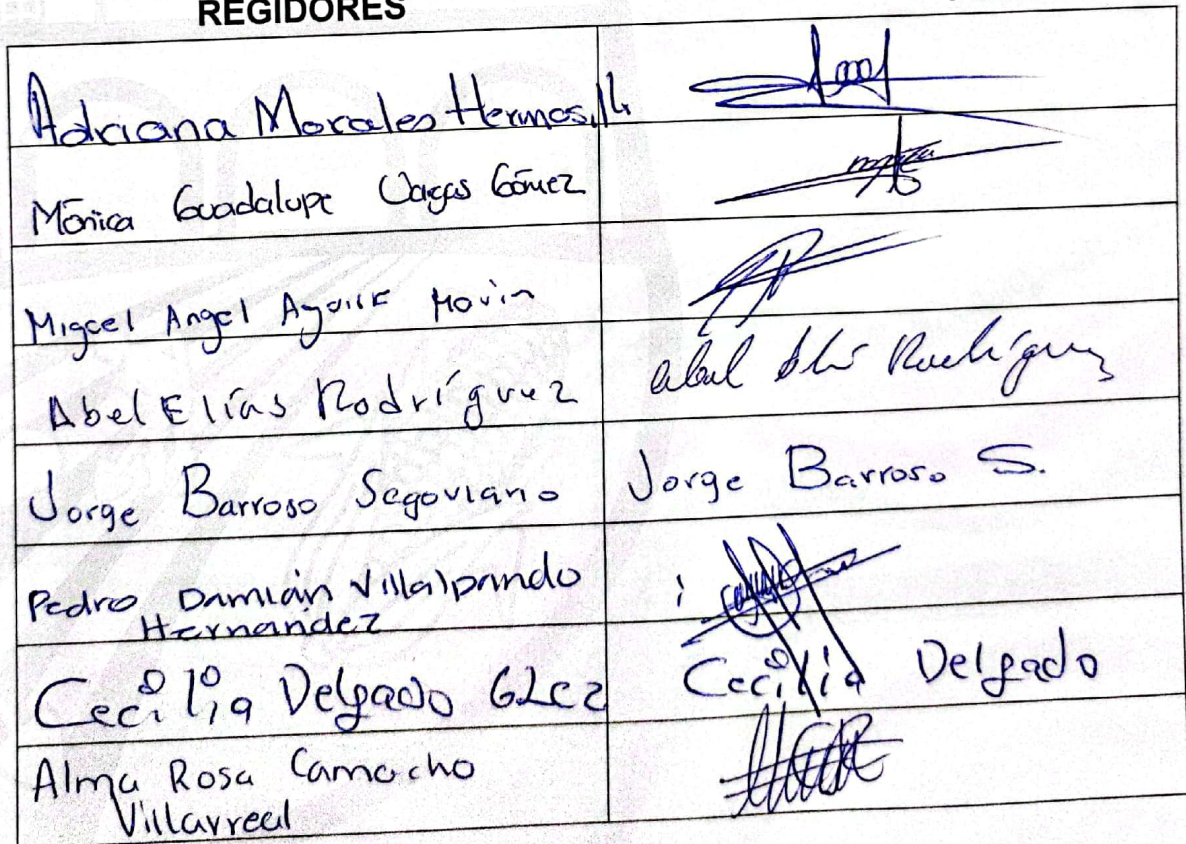 REGIDORES
Adriana Morales Hermosill
Mónica Guadalupe Vargas Gómez
Miguel Angel Aguirre
Abel Elías Rodríguez
Abel Elías Rodríguez
Jorge Barroso Segoviano
Jorge Barroso S.
Pedro Damián Villalpando
Hernandez
Cecilia Delgado Glez
Cecilia Delgado
Alma Rosa Camacho
Villarreal